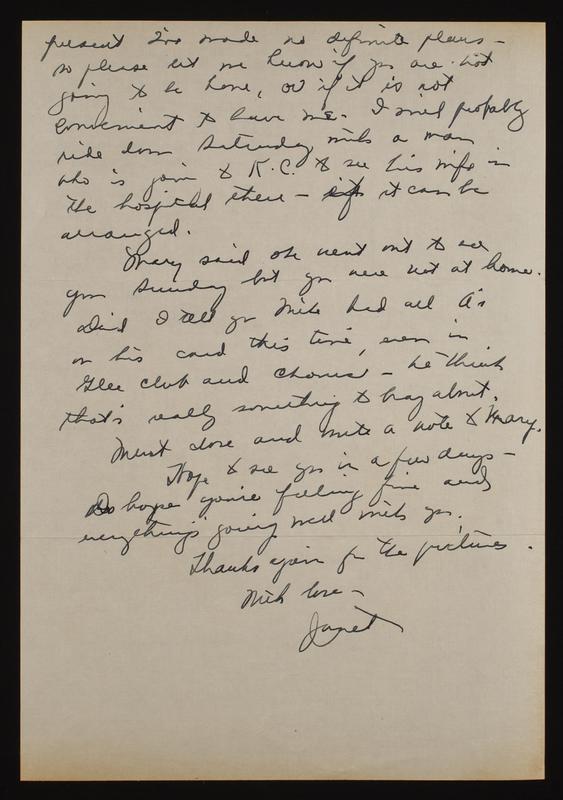 present I've made no definite plans –
so please let me know if you are not
going to be home, or if it is not
convenient to have me. I will probably
ride down Saturday with a man
who is goin to K.C. to see his wife in
the hospital there – if it can be
arranged.
Mary said she went out to see
you Sunday but you were not at home.
Did I tell you Mike had all A's
on his card this time, even in
Glee club and Chorus – he thinks
that's really something to brag about.
Must close and write a note to Mary.
Hope to see you in a few days –
Do hope you're feeling fine and
everything's going well with you.
Thanks again for the pictures.
With love –
Janet